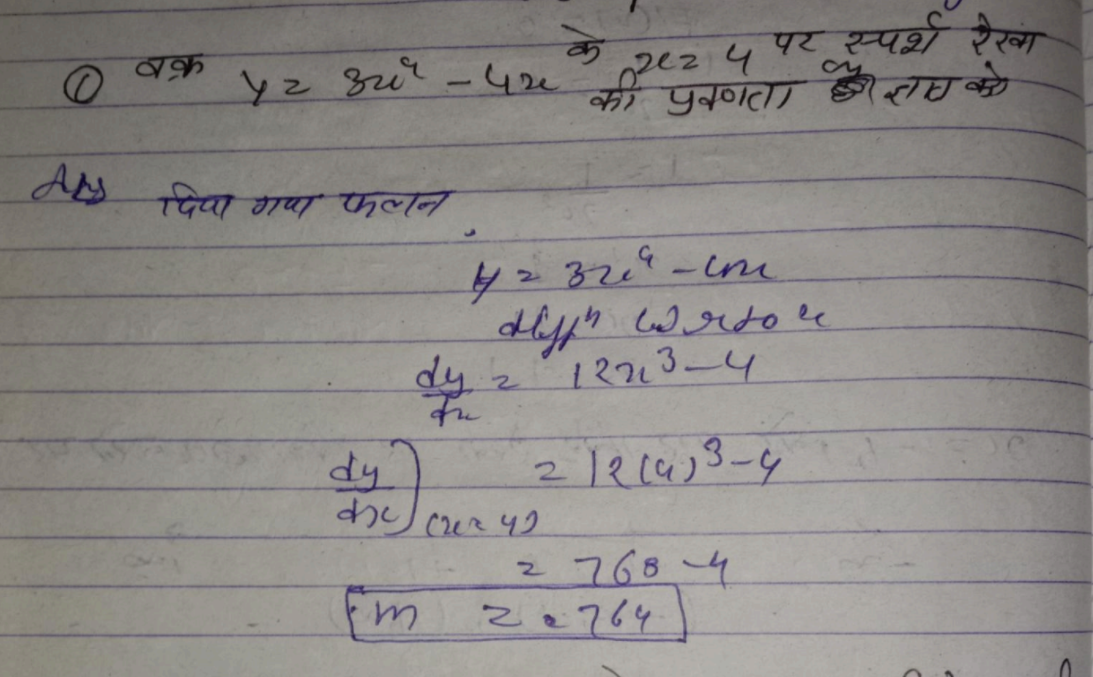 ① वक्र y = 3x⁴ - 4x के x = 4 पर स्पर्श रेखा
की प्रवणता ज्ञात करो
Ans दिया गया फलन
y = 3x⁴ - 4x
diffⁿ w.r. to x
dy/dx = 12x³ - 4
dy/dx)(x = 4) = 12(4)³ - 4
= 768 - 4
m = 764